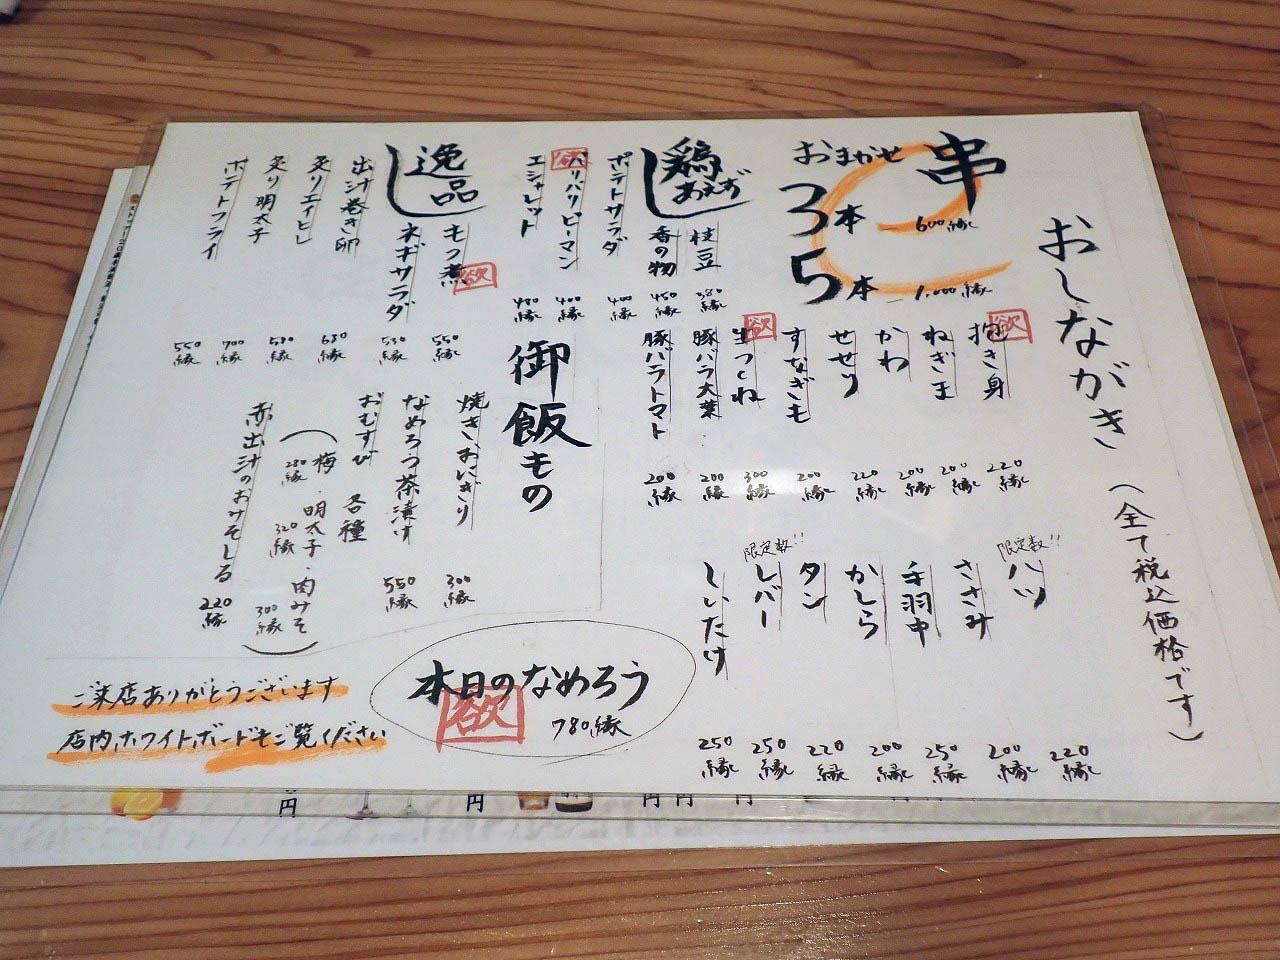 おしながき（全て税込価格です）
串
おまかせ
3本 600縁
5本 1,000縁
欲
抱き身 220縁
ねぎま 200縁
かわ 200縁
せせり 220縁
すなぎも 200縁
欲
生つくね 300縁
豚バラ大葉 200縁
豚バラトマト 200縁
限定数!!
ハツ 220縁
ささみ 200縁
手羽中 250縁
かしら 200縁
タン 220縁
限定数!!
レバー 250縁
しいたけ 250縁
鶏あえず
枝豆 380縁
香の物 450縁
ポテトサラダ 400縁
欲
パリパリピーマン 400縁
エシャレット 480縁
逸品
もつ煮 550縁
欲
ネギサラダ 530縁
出汁巻き卵 680縁
炙りエイヒレ 580縁
炙り明太子 700縁
ポテトフライ 550縁
御飯もの
焼きおにぎり 300縁
なめろう茶漬け 550縁
おむすび 各種
（梅・明太子・肉みそ）
280縁 320縁 300縁
赤出汁のおみそしる 220縁
本日のなめろう
欲
780縁
ご来店ありがとうございます
店内ホワイトボードもご覧ください
円
円
円
円
円
円